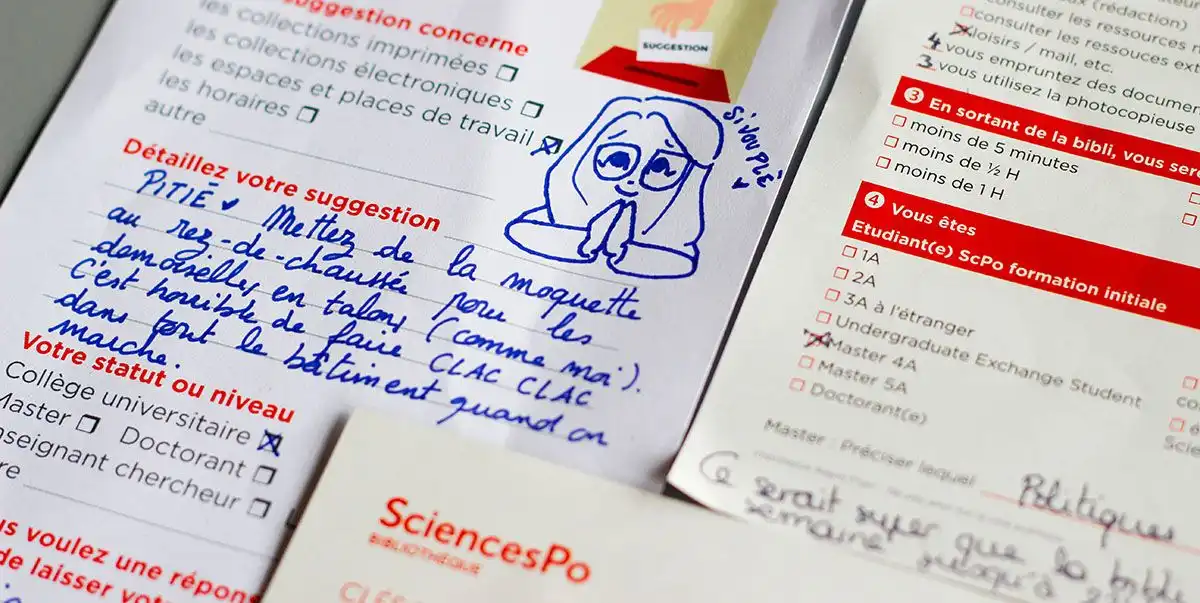 suggestion concerne
les collections imprimées
les collections électroniques
les espaces et places de travail
les horaires
autre
SUGGESTION
SIVOUPLÉ
Détaillez votre suggestion
PITIÉ Mettez de la moquette
au rez-de-chaussée pour les
demoiselles en talons (comme moi).
C'est horrible de faire CLAC CLAC
dans tout le bâtiment quand on
marche.
Votre statut ou niveau
Collège universitaire
Master Doctorant
nseignant chercheur
re
us voulez une répons
de laisser votr
SciencesPo
BIBLIOTHÈQUE
(rédaction)
consulter les ressources
consulter les ressouces ext
loisirs / mail, etc.
4 vous empruntez des documen
3 vous utilisez la photocopieuse
3 En sortant de la bibli, vous sere
moins de 5 minutes
moins de ½ H
moins de 1 H
4 Vous êtes
Etudiant(e) ScPo formation initiale
1A
2A
3A à l'étranger
Undergraduate Exchange Student
Master 4A
Master 5A
Doctorant(e)
Master : Préciser lequel Politiques
Ce serait super que la bibli
semaine jusqu'à